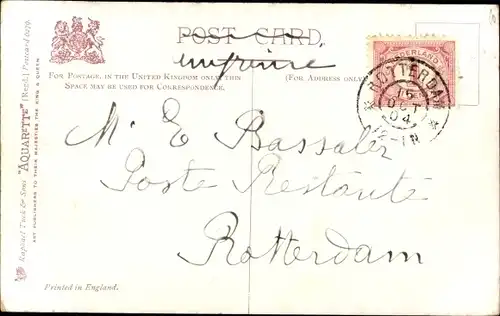 POST CARD
imprimé
FOR POSTAGE, IN THE UNITED KINGDOM ONLY, THIS
SPACE MAY BE USED FOR CORRESPONDENCE.
(FOR ADDRESS ONLY)
ROTTERDAM
15
OCT
04
12-1N
M. E Bassaler
Poste Restante
Rotterdam
Raphael Tuck & Sons' "AQUARETTE" (Regd.) Postcard
ART PUBLISHERS TO THEIR MAJESTIES THE KING & QUEEN
Printed in England.